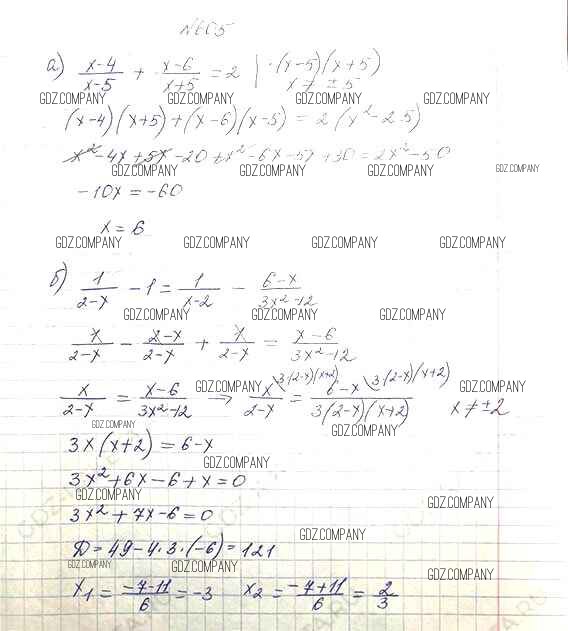 N605
а) (x-4)/(x-5) + (x-6)/(x+5) = 2 | ·(x-5)(x+5)
x ≠ ±5
GDZ.COMPANY GDZ.COMPANY GDZ.COMPANY GDZ.COMPANY
(x-4)(x+5)+(x-6)(x-5) = 2(x²-25)
x²-4x+5x-20+x²-6x-5x+30=2x²-50
GDZ.COMPANY GDZ.COMPANY GDZ.COMPANY GDZ.COMPANY
-10x=-60
x=6
GDZ.COMPANY GDZ.COMPANY GDZ.COMPANY GDZ.COMPANY
б) 1/(2-x) - 1 = 1/(x-2) - (6-x)/(3x²-12)
GDZ.COMPANY GDZ.COMPANY GDZ.COMPANY
1/(2-x) - (2-x)/(2-x) + 1/(2-x) = (x-6)/(3x²-12)
x/(2-x) = (x-6)/(3x²-12) → x\3(2-x)(x+2)/(2-x) = 6-x\3(2-x)(x+2)/3(2-x)(x+2) x≠±2
GDZ.COMPANY GDZ.COMPANY
GDZ.COMPANY GDZ.COMPANY
3x(x+2)=6-x
GDZ.COMPANY
3x²+6x-6+x=0
GDZ.COMPANY GDZ.COMPANY
3x²+7x-6=0
GDZ.COMPANY
D=49-4·3·(-6)=121
GDZ.COMPANY GDZ.COMPANY GDZ.COMPANY
x₁=(-7-11)/6=-3 x₂=(-7+11)/6=2/3